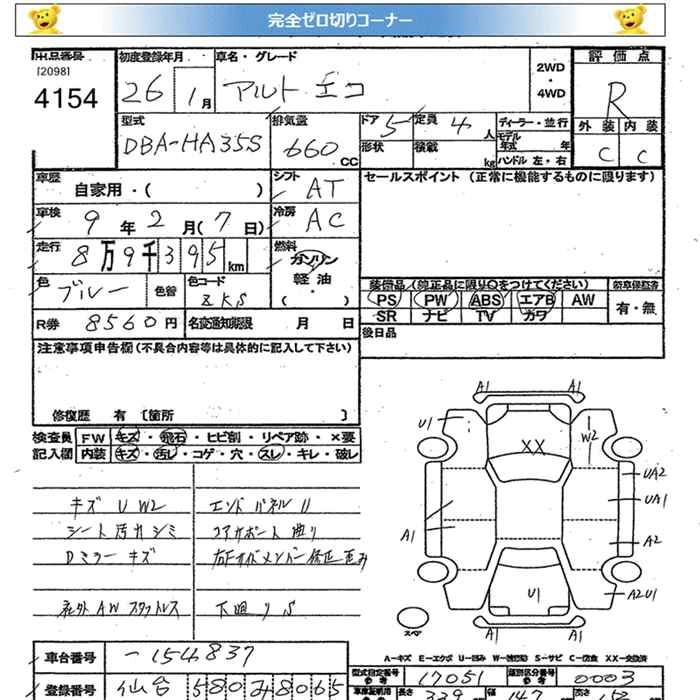 完全ゼロ切りコーナー
出品番号 初度登録年月 車名・グレード 評価点
[2098]
4154 26 1月 アルト エコ 2WD・4WD R
型式 排気量 ドア 5 定員 4人 ディーラー・並行 外装 内装
DBA-HA35S 660cc 形状 積載 kg モデル年式 年 ハンドル 左・右 C C
車歴 自家用・( ) シフト AT セールスポイント(正常に機能するものに限ります)
車検 9年2月(7日) 冷房 AC
走行 8万9千395km 燃料 ガソリン 軽油・( )
色 ブルー 色替 色コード ZKS 装備品(純正品に限り○をつけてください) 新車保証書
PS PW ABS エアB AW 有・無
SR ナビ TV カワ
R券 8560円 名変通知期限 月 日 後日品
注意事項申告欄(不具合内容等は具体的に記入して下さい)
修復歴 有 [箇所 ]
検査員 FW キズ・飛石・ヒビ割・リペア跡・×要
記入欄 内装 キズ・汚レ・コゲ・穴・スレ・キレ・破レ
キズ U W2 エンドパネルU
シート汚れシミ コアサポート曲り
Dミラーキズ
社外AWスタットレス 下廻りS
A1 A1
U1 W2
XX
UA2
UA1
A1 A2
U1 A2U1
A1 A1
スペア
A-キズ E-エクボ U-凹み W-波 S-サビ C-腐食 XX-交換済
車台番号 -154837 型式指定番号 17051 類別区分番号 0003
登録番号 仙台 580 み 8065 長さ 339 幅 147 高さ 152